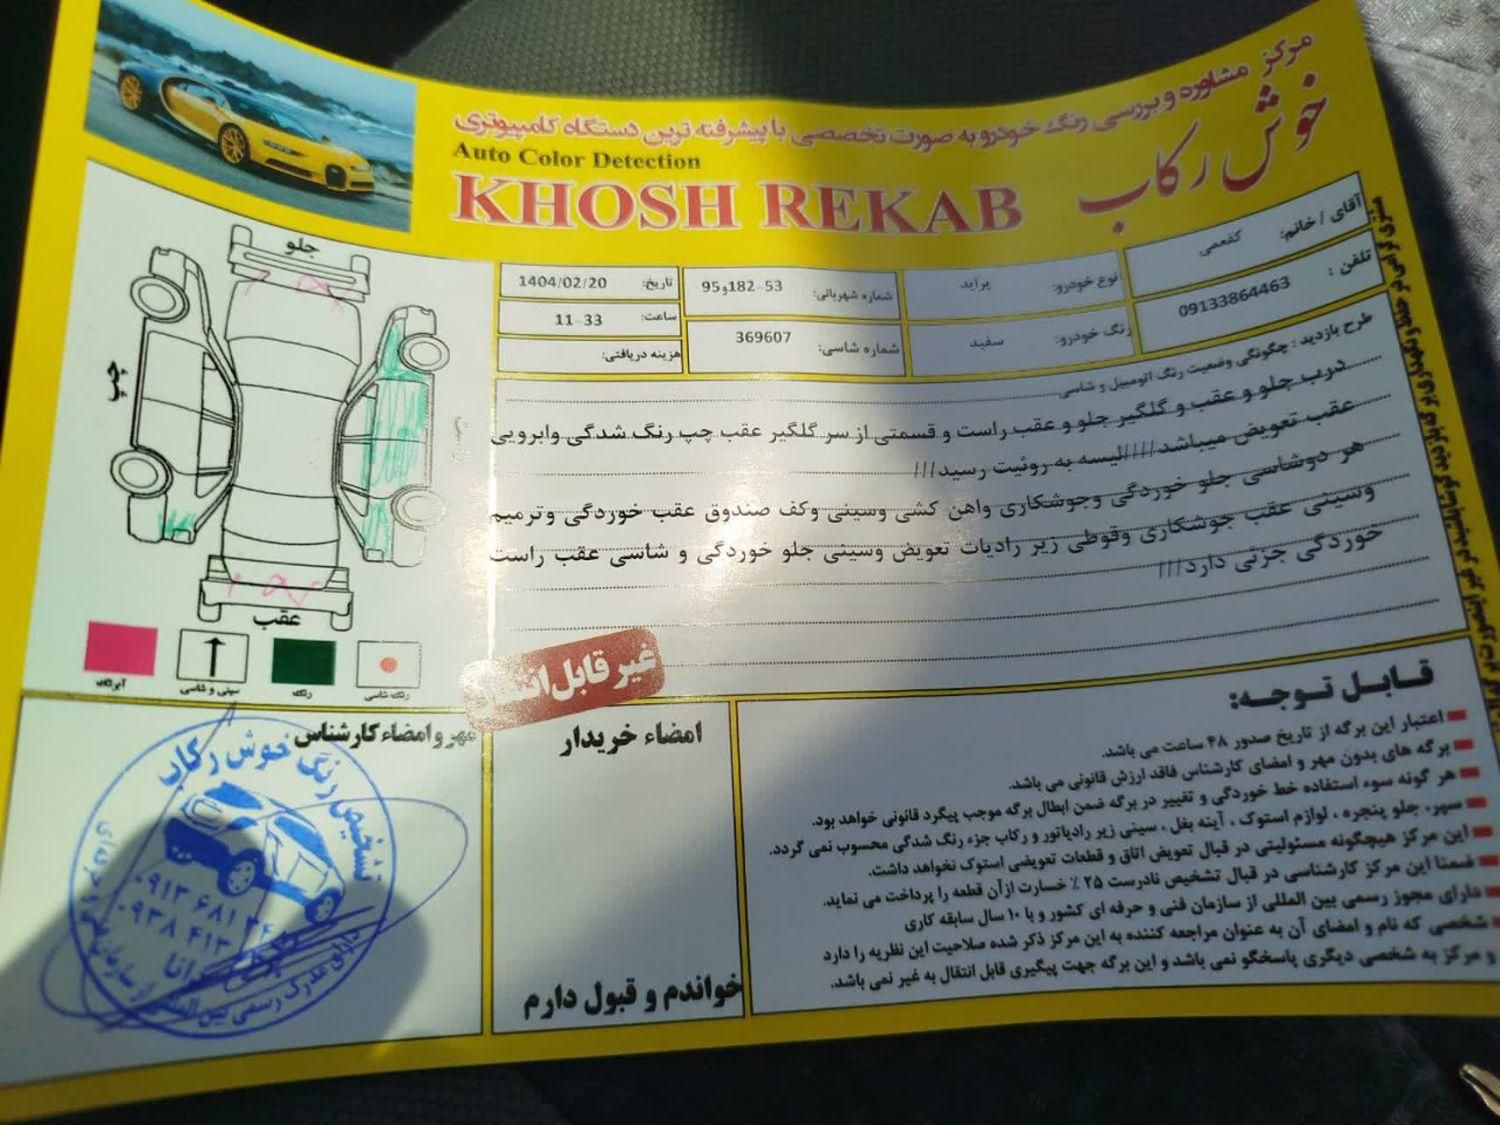 مرکز مشاوره و بررسی رنگ خودرو به صورت تخصصی با پیشرفته ترین دستگاه کامپیوتری
خوش رکاب
Auto Color Detection
KHOSH REKAB
آقای / خانم: کفعمی
تلفن : 09133864463
نوع خودرو: پراید
رنگ خودرو: سفید
شماره شهربانی: 53-182و95
شماره شاسی: 369607
تاریخ: 1404/02/20
ساعت: 11-33
هزینه دریافتی:
طرح بازدید : چگونگی وضعیت رنگ اتومبیل و شاسی
درب جلو و عقب و گلگیر جلو و عقب راست و قسمتی از سر گلگیر عقب چپ رنگ شدگی وابرویی
عقب تعویض میباشد////لیسه به روئیت رسید///
هر دوشاسی جلو خوردگی وجوشکاری واهن کشی وسینی وکف صندوق عقب خوردگی وترمیم
وسینی عقب جوشکاری وقوطی زیر رادیات تعویض وسینی جلو خوردگی و شاسی عقب راست
خوردگی جزئی دارد///
جلو
چپ
عقب
آبرنگ
سینی و شاسی
رنگ
رنگ شاسی
غیر قابل
مهر و امضاء کارشناس
تشخیص رنگ خوش رکاب
امضاء خریدار
خواندم و قبول دارم
قابل توجه:
اعتبار این برگه از تاریخ صدور ۴۸ ساعت می باشد.
برگه های بدون مهر و امضای کارشناس فاقد ارزش قانونی می باشد.
هر گونه سوء استفاده خط خوردگی و تغییر در برگه ضمن ابطال برگه موجب پیگرد قانونی خواهد بود.
سپر، جلو پنجره ، لوازم استوک ، آینه بغل ، سینی زیر رادیاتور و رکاب جزء رنگ شدگی محسوب نمی گردد.
این مرکز هیچگونه مسئولیتی در قبال تعویض اتاق و قطعات تعویضی استوک نخواهد داشت.
ضمنا این مرکز کارشناسی در قبال تشخیص نادرست ۲۵ ٪ خسارت ازآن قطعه را پرداخت می نماید.
دارای مجوز رسمی بین المللی از سازمان فنی و حرفه ای کشور و با ۱۰ سال سابقه کاری
شخصی که نام و امضای آن به عنوان مراجعه کننده به این مرکز ذکر شده صلاحیت این نظریه را دارد
و مرکز به شخصی دیگری پاسخگو نمی باشد و این برگه جهت پیگیری قابل انتقال به غیر نمی باشد.